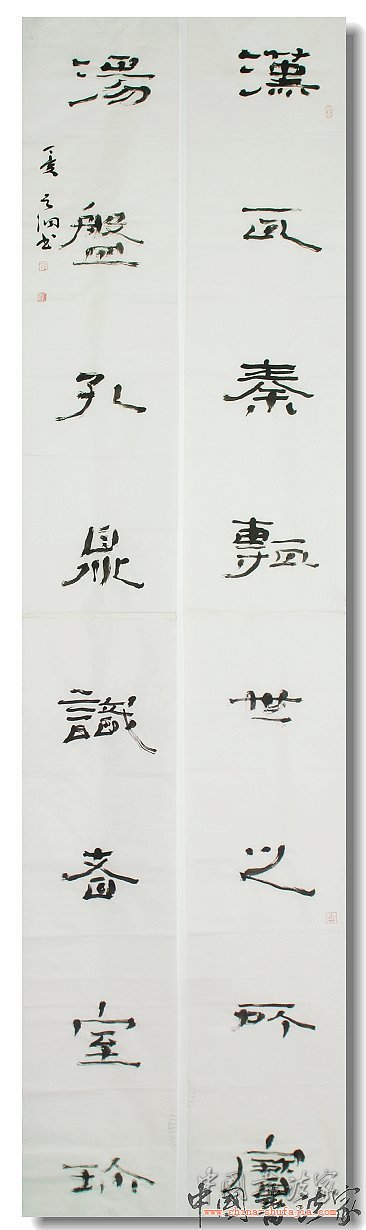 漢瓦秦甎世之所寶
湯盤孔鼎識者室珍
丁亥
中國書法家
www.china-shufajia.com